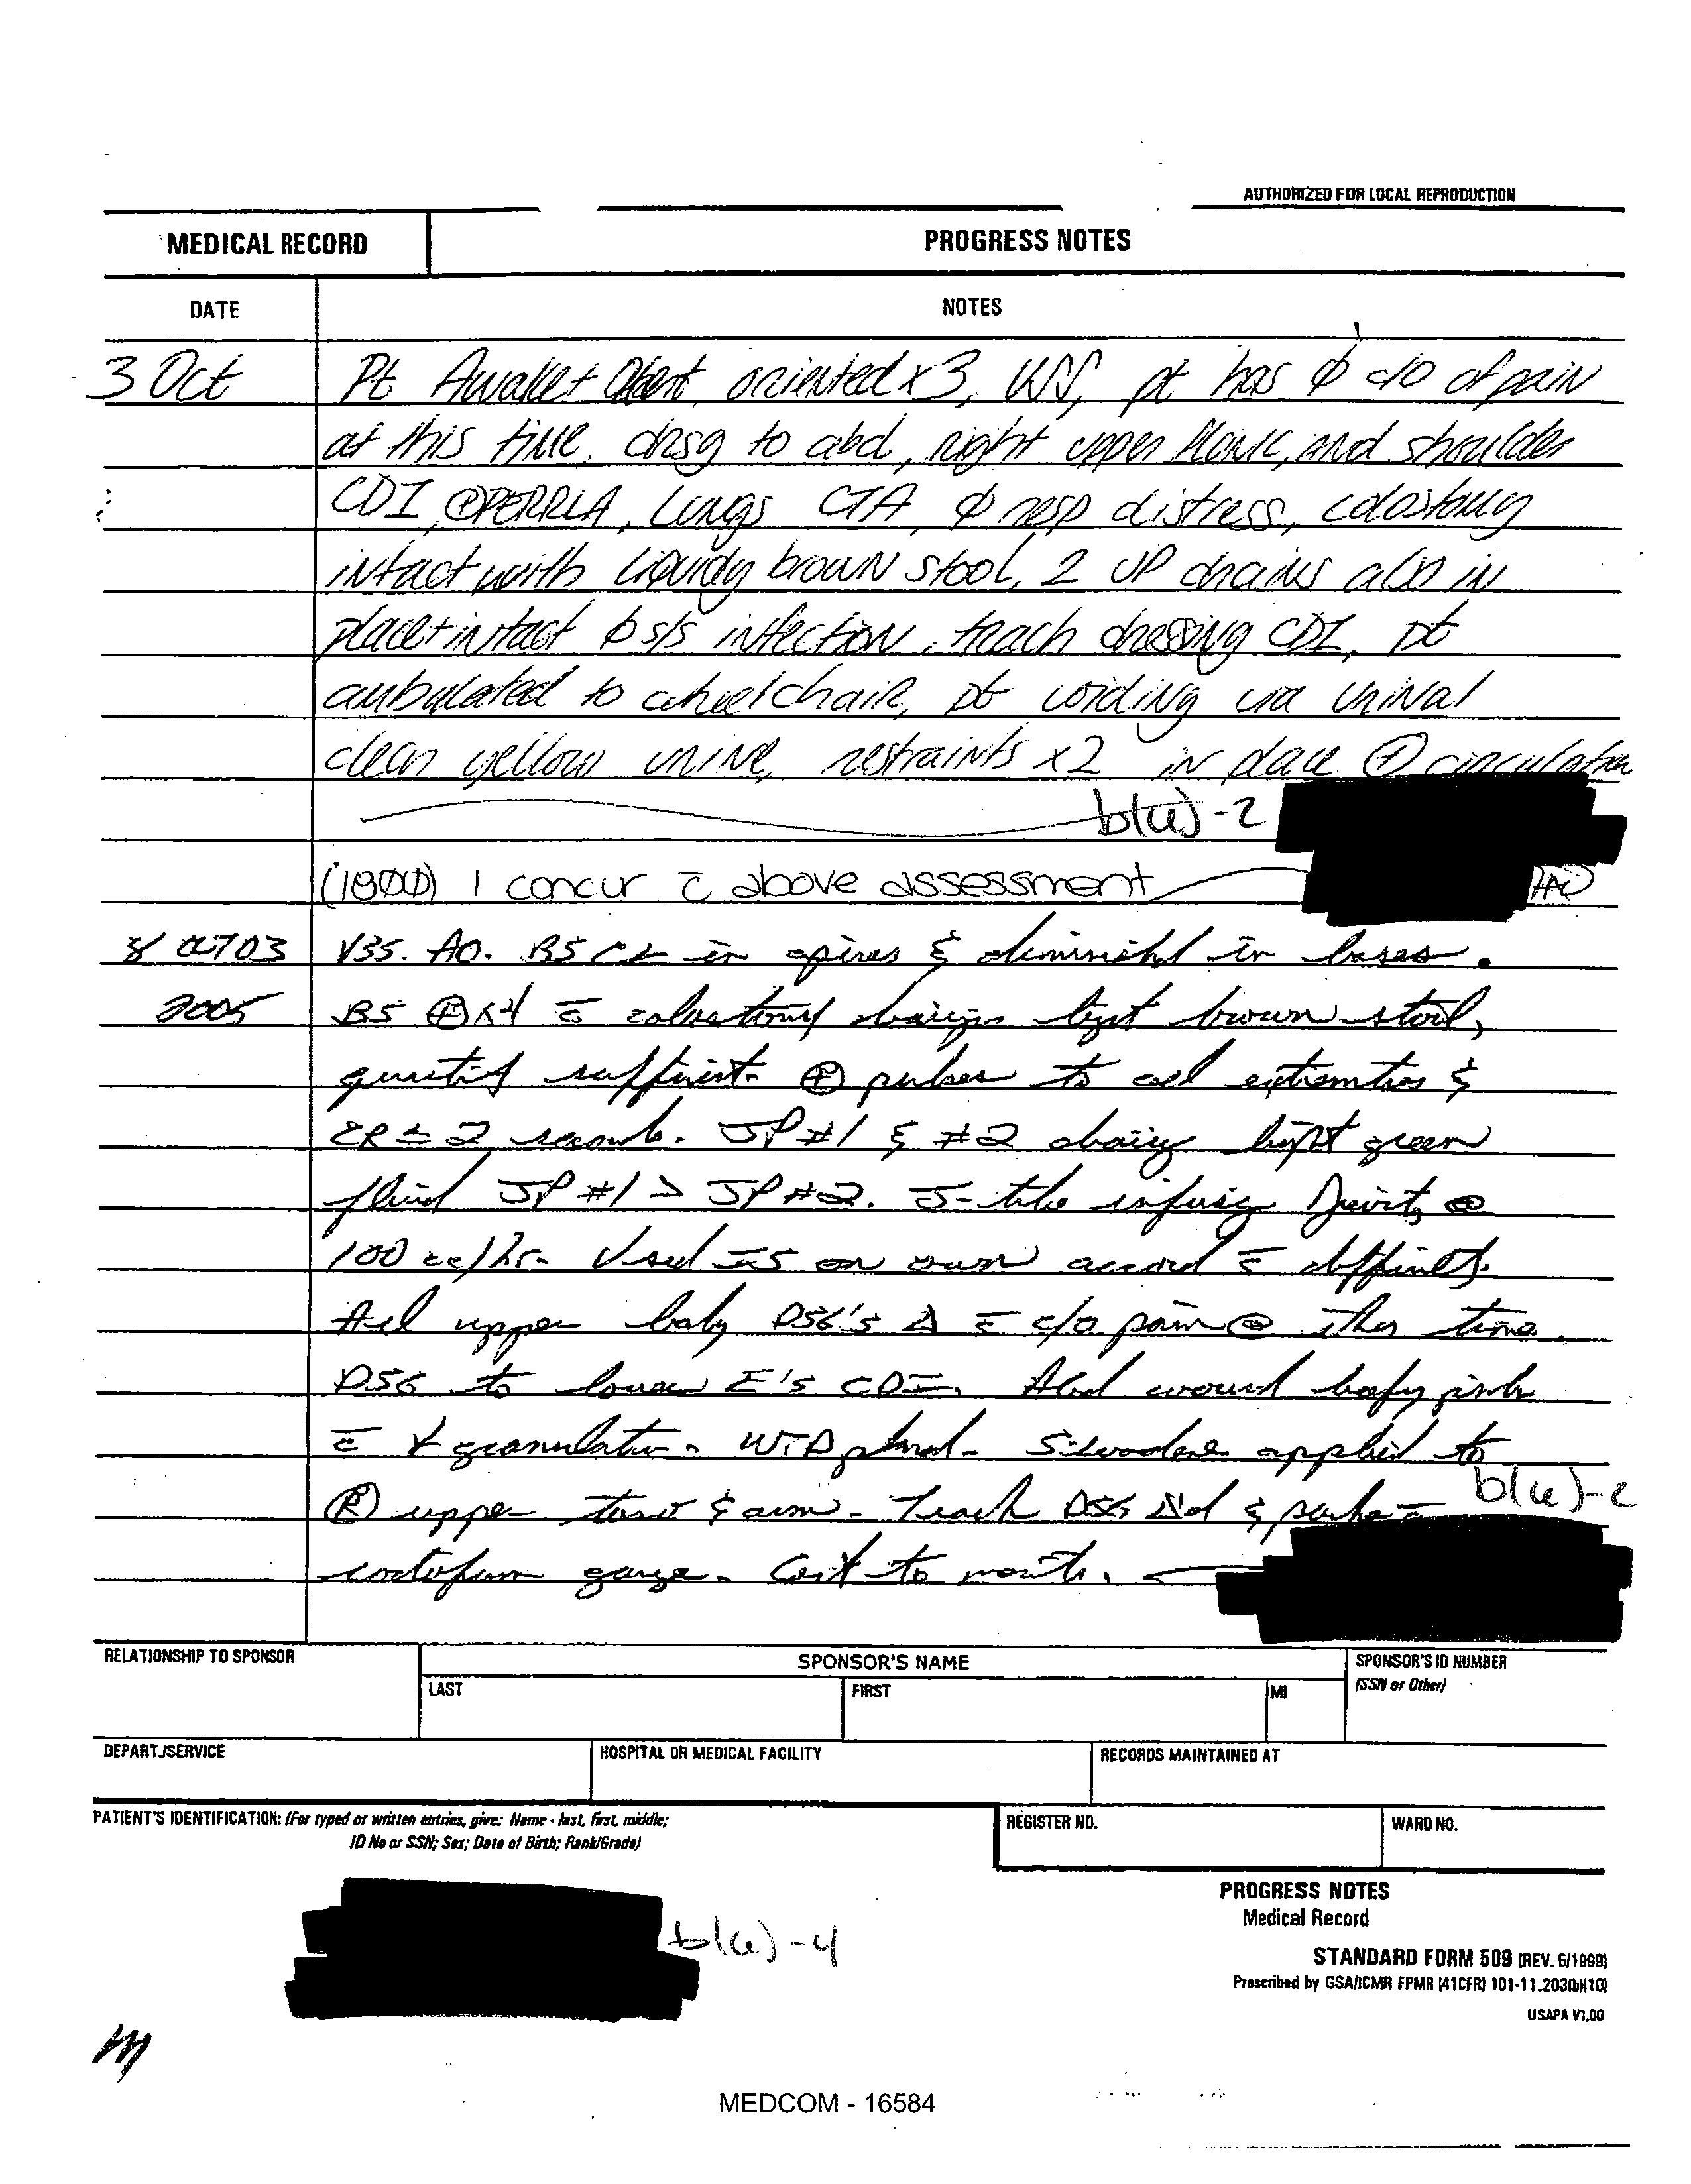 AUTHORIZED FOR LOCAL REPRODUCTION
MEDICAL RECORD
PROGRESS NOTES
DATE
NOTES
3 Oct Pt Awake + Alert, oriented x 3, VSS, pt has φ c/o of pain
at this time, drsg to abd, right upper flank, and shoulder
CDI, PERRLA, Lungs CTA, φ resp distress, colostomy
intact with liquidy brown stool, 2 JP drains also in
place + intact φ s/s infection, trach dressing CDI, pt
ambulated to wheelchair, pt voiding via urinal
clear yellow urine, restraints x2 in place ⊕ circulation
b(6)-2
(1800) I concur c̄ above assessment
3 Oct 03 VSS. AO. BS CL in apices & diminishd in bases.
2005 BS ⊕ x4 c̄ colostomy light brown stool,
quantity sufficient. ⊕ pulses to all extremities &
CR ≤ 2 seconds. JP #1 & #2 light green
fluid JP #1 > JP #2. J-tube infusing @
100 cc/hr. on own accord difficulty.
All upper body DSG's Δ c/o pain @ this time.
DSG to lower E's CDI. Abd wound beefy pink
c̄ granulation. WTD placed. Silvadene applied to
Ⓡ upper & arm. Trach DSG &
gauze. Cont to monitor.
b(6)-2
RELATIONSHIP TO SPONSOR
SPONSOR'S NAME
SPONSOR'S ID NUMBER
(SSN or Other)
LAST
FIRST
MI
DEPART./SERVICE
HOSPITAL OR MEDICAL FACILITY
RECORDS MAINTAINED AT
PATIENT'S IDENTIFICATION: (For typed or written entries, give: Name - last, first, middle;
ID No or SSN; Sex; Date of Birth; Rank/Grade)
REGISTER NO.
WARD NO.
b(6)-4
PROGRESS NOTES
Medical Record
STANDARD FORM 509 (REV. 6/1999)
Prescribed by GSA/ICMR FPMR (41CFR) 101-11.203(b)(10)
USAPA V1.00
MEDCOM - 16584